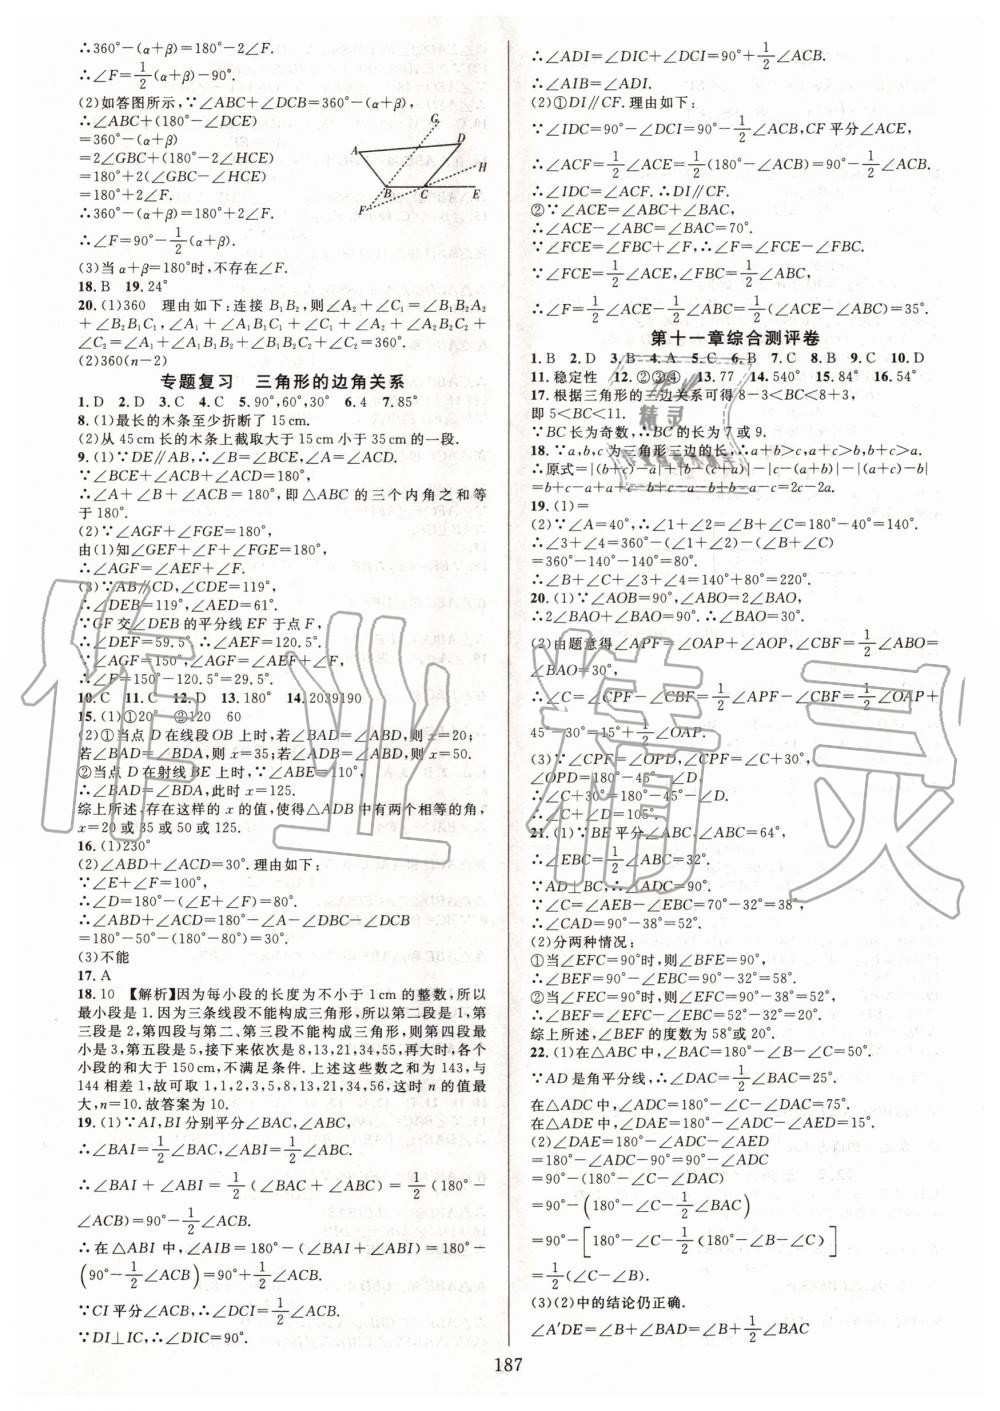 ∴360°-(α+β)=180°-2∠F.
∴∠F=1/2(α+β)-90°.
(2)如答图所示,∵∠ABC+∠DCB=360°-(α+β),
∴∠ABC+(180°-∠DCE)
=360°-(α+β)
=2∠GBC+(180°-2∠HCE)
=180°+2(∠GBC-∠HCE)
=180°+2∠F.
∴360°-(α+β)=180°+2∠F.
∴∠F=90°-1/2(α+β).
G
A D
H
B C E
F
(3)当α+β=180°时,不存在∠F.
18.B 19.24°
20.(1)360 理由如下:连接B₁B₂,则∠A₂+∠C₁=∠B₁B₂A₂
+∠B₂B₁C₁,∴∠A₁+∠B₁+∠C₁+∠A₂+∠A₂B₂C₂+
∠C₂=∠A₁+∠A₁B₁B₂+∠B₁B₂C₂+∠C₂=360°.
(2)360(n-2)
专题复习 三角形的边角关系
1.D 2.D 3.C 4.C 5.90°,60°,30° 6.4 7.85°
8.(1)最长的木条至少折断了15cm.
(2)从45cm长的木条上截取大于15cm小于35cm的一段.
9.(1)∵DE∥AB,∴∠B=∠BCE,∠A=∠ACD.
∵∠BCE+∠ACB+∠ACD=180°,
∴∠A+∠B+∠ACB=180°,即△ABC的三个内角之和等
于180°.
(2)∵∠AGF+∠FGE=180°,
由(1)知∠GEF+∠F+∠FGE=180°,
∴∠AGF=∠AEF+∠F.
(3)∵AB∥CD,∠CDE=119°,
∴∠DEB=119°,∠AED=61°.
∵GF交∠DEB的平分线EF于点F,
∴∠DEF=59.5°.∴∠AEF=120.5°.
∵∠AGF=150°,∠AGF=∠AEF+∠F,
∴∠F=150°-120.5°=29.5°.
10.C 11.C 12.D 13.180° 14.2039190
15.(1)①20° ②120 60
(2)①当点D在线段OB上时,若∠BAD=∠ABD,则x=20;
若∠BAD=∠BDA,则x=35;若∠ADB=∠ABD,则x=50.
②当点D在射线BE上时,∵∠ABE=110°,
∴∠BAD=∠BDA,此时x=125.
综上所述,存在这样的x的值,使得△ADB中有两个相等的角,
x=20或35或50或125.
16.(1)230°
(2)∠ABD+∠ACD=30°.理由如下:
∵∠E+∠F=100°,
∴∠D=180°-(∠E+∠F)=80°.
∴∠ABD+∠ACD=180°-∠A-∠DBC-∠DCB
=180°-50°-(180°-80°)=30°.
(3)不能
17.A
18.10 【解析】因为每小段的长度为不小于1cm的整数,所以
最小段是1.因为三条线段不能构成三角形,所以第二段是1,第
三段是2,第四段与第二、第三段不能构成三角形,则第四段最
小是3,第五段是5,接下来依次是8,13,21,34,55,再大时,各个
小段的和大于150cm,不满足条件.上述这些数之和为143,与
144相差1,故可取1,1,2,3,5,8,13,21,34,56,这时n的值最
大,n=10.故答案为10.
19.(1)∵AI,BI分别平分∠BAC,∠ABC,
∴∠BAI=1/2∠BAC,∠ABI=1/2∠ABC.
∴∠BAI+∠ABI=1/2(∠BAC+∠ABC)=1/2(180°-
∠ACB)=90°-1/2∠ACB.
∴在△ABI中,∠AIB=180°-(∠BAI+∠ABI)=180°-
(90°-1/2∠ACB)=90°+1/2∠ACB.
∵CI平分∠ACB,∴∠DCI=1/2∠ACB.
∵DI⊥IC,∴∠DIC=90°.
∴∠ADI=∠DIC+∠DCI=90°+1/2∠ACB.
∴∠AIB=∠ADI.
(2)①DI∥CF.理由如下:
∵∠IDC=90°-∠DCI=90°-1/2∠ACB,CF平分∠ACE,
∴∠ACF=1/2∠ACE=1/2(180°-∠ACB)=90°-1/2∠ACB.
∴∠IDC=∠ACF.∴DI∥CF.
②∵∠ACE=∠ABC+∠BAC,
∴∠ACE-∠ABC=∠BAC=70°.
∵∠FCE=∠FBC+∠F,∴∠F=∠FCE-∠FBC.
∵∠FCE=1/2∠ACE,∠FBC=1/2∠ABC,
∴∠F=1/2∠ACE-1/2∠ABC=1/2(∠ACE-∠ABC)=35°.
第十一章综合测评卷
1.B 2.D 3.B 4.A 5.C 6.B 7.C 8.B 9.C 10.D
11.稳定性 12.②③④ 13.77 14.540° 15.85° 16.54°
17.根据三角形的三边关系可得8-3<BC<8+3,
即5<BC<11.
∵BC长为奇数,∴BC的长为7或9.
18.∵a,b,c为三角形三边的长,∴a+b>c,a+c>b,b+c>a.
∴原式=|(b+c)-a|+|b-(c+a)|-|c-(a+b)|-|(a+c)-b|
=b+c-a+a+c-b+c-a-b+b-a-c=2c-2a.
19.(1)=
(2)∵∠A=40°,∴∠1+∠2=∠B+∠C=180°-40°=140°.
∴∠3+∠4=360°-(∠1+∠2)-(∠B+∠C)
=360°-140°-140°=80°.
∴∠B+∠C+∠1+∠2+∠3+∠4=360°.
20.(1)∵∠AOB=90°,∠ABO=2∠BAO,
∴2∠BAO+∠BAO=90°.∴∠BAO=30°.
(2)由题意得∠APF=∠OAP+∠AOP,∠CBF=1/2∠ABO=
∠BAO=30°,
∴∠C=∠CPF-∠CBF=1/2∠APF-∠CBF=1/2∠OAP+
45°-30°=15°+1/2∠OAP.
(3)∵∠CPF=∠OPD,∠CPF=∠C+30°,
∠OPD=180°-45°-∠D,
∴∠C+30°=180°-45°-∠D.
∴∠C+∠D=105°.
21.(1)∵BE平分∠ABC,∠ABC=64°,
∴∠EBC=1/2∠ABC=32°.
∵AD⊥BC,∴∠ADC=90°.
∵∠C=∠AEB-∠EBC=70°-32°=38°,
∴∠CAD=90°-38°=52°.
(2)分两种情况:
①当∠EFC=90°时,则∠BFE=90°,
∴∠BEF=90°-∠EBC=90°-32°=58°.
②当∠FEC=90°时,则∠EFC=90°-38°=52°,
∴∠BEF=∠EFC-∠EBC=52°-32°=20°.
综上所述,∠BEF的度数为58°或20°.
22.(1)在△ABC中,∠BAC=180°-∠B-∠C=50°.
∵AD是角平分线,∴∠DAC=1/2∠BAC=25°.
在△ADC中,∠ADC=180°-∠C-∠DAC=75°.
在△ADE中,∠DAE=180°-∠ADC-∠AED=15°.
(2)∠DAE=180°-∠ADC-∠AED
=180°-∠ADC-90°=90°-∠ADC
=90°-(180°-∠C-∠DAC)
=90°-(180°-∠C-1/2∠BAC)
=90°-[180°-∠C-1/2(180°-∠B-∠C)]
=1/2(∠C-∠B).
(3)(2)中的结论仍正确.
∠A′DE=∠B+∠BAD=∠B+1/2∠BAC
187
作业精灵
精灵